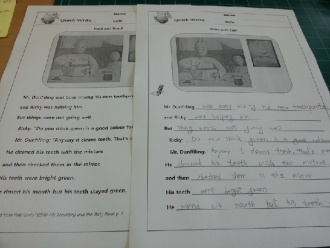 Quick Write
Name
Date
Mr. Dunfilling was busy mixing his new toothpaste
and Ricky was helping him.
But things were not going well.
Ricky: "Do you think green is a good colour
Mr. Dunfilling: "Anyway it cleans teeth. That's
He cleaned his teeth with the mixture
and then checked them in the mirror.
His teeth were bright green.
He rinsed his mouth but his teeth stayed green.
Quick Write
Name
Date
Mr. Dunfilling was busy his new toothpaste
and Ricky was helping him
But things were not going well
Ricky: Do you think green is a good colour
Mr. Dunfilling: Anyway it cleans teeth. That's
He cleaned his teeth with the mixture
and then checked them in the mirror
His teeth were bright green
He rinse his mouth but his teeth